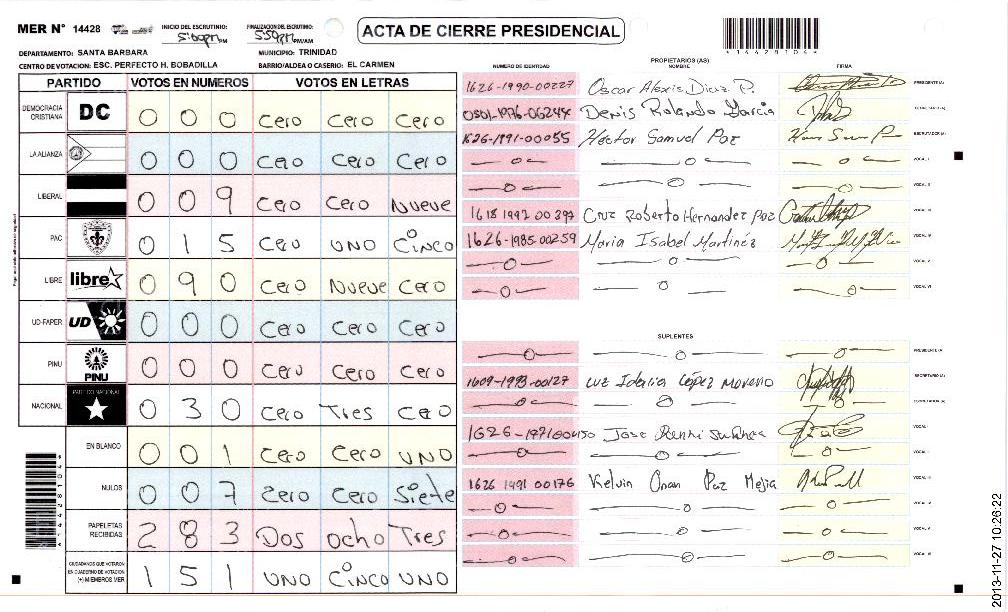 MER N° 14428
INICIO DEL ESCRUTINIO: 5:00pm PM
FINALIZACIÓN DEL ESCRUTINIO: 5:59pm PM/AM
ACTA DE CIERRE PRESIDENCIAL
DEPARTAMENTO: SANTA BARBARA
MUNICIPIO: TRINIDAD
CENTRO DE VOTACION: ESC. PERFECTO H. BOBADILLA
BARRIO/ALDEA O CASERIO: EL CARMEN
PARTIDO VOTOS EN NUMEROS VOTOS EN LETRAS
DEMOCRACIA CRISTIANA DC 0 0 0 Cero Cero Cero
LA ALIANZA 0 0 0 Cero Cero Cero
LIBERAL 0 0 9 Cero Cero Nueve
PAC 0 1 5 Cero UNO Cinco
LIBRE libre 0 9 0 Cero Nueve Cero
UD-FAPER UD 0 0 0 Cero Cero Cero
PINU PINU 0 0 0 Cero Cero Cero
NACIONAL PARTIDO NACIONAL 0 3 0 Cero Tres Cero
EN BLANCO 0 0 1 Cero Cero UNO
NULOS 0 0 7 Zero Cero Siete
PAPELETAS RECIBIDAS 2 8 3 Dos ocho Tres
CIUDADANOS QUE VOTARON EN CUADERNO DE VOTACION (+) MIEMBROS MER 1 5 1 UNO CINCO UNO
PROPIETARIOS (AS)
NUMERO DE IDENTIDAD NOMBRE FIRMA
1626-1990-00227 Oscar Alexis Diaz P. PRESIDENTE (A)
0501-1976-06244 Denis Rolando Garcia SECRETARIO (A)
1626-1991-00055 Hector Samuel Paz ESCRUTADOR (A)
VOCAL I
VOCAL II
1618 1992 00397 Cruz Roberto Hernandez Paz VOCAL III
1626-1985-00259 Maria Isabel Martinez VOCAL IV
VOCAL V
VOCAL VI
SUPLENTES
PRESIDENTE (A)
1609-1993-00127 Luz Idalia López Moreno SECRETARIO (A)
ESCRUTADOR (A)
1626-1971 00450 Jose VOCAL I
VOCAL II
1626 1991 00176 Kelvin Onan Paz Mejia VOCAL III
VOCAL IV
VOCAL V
VOCAL VI
2013-11-27 10:26:22